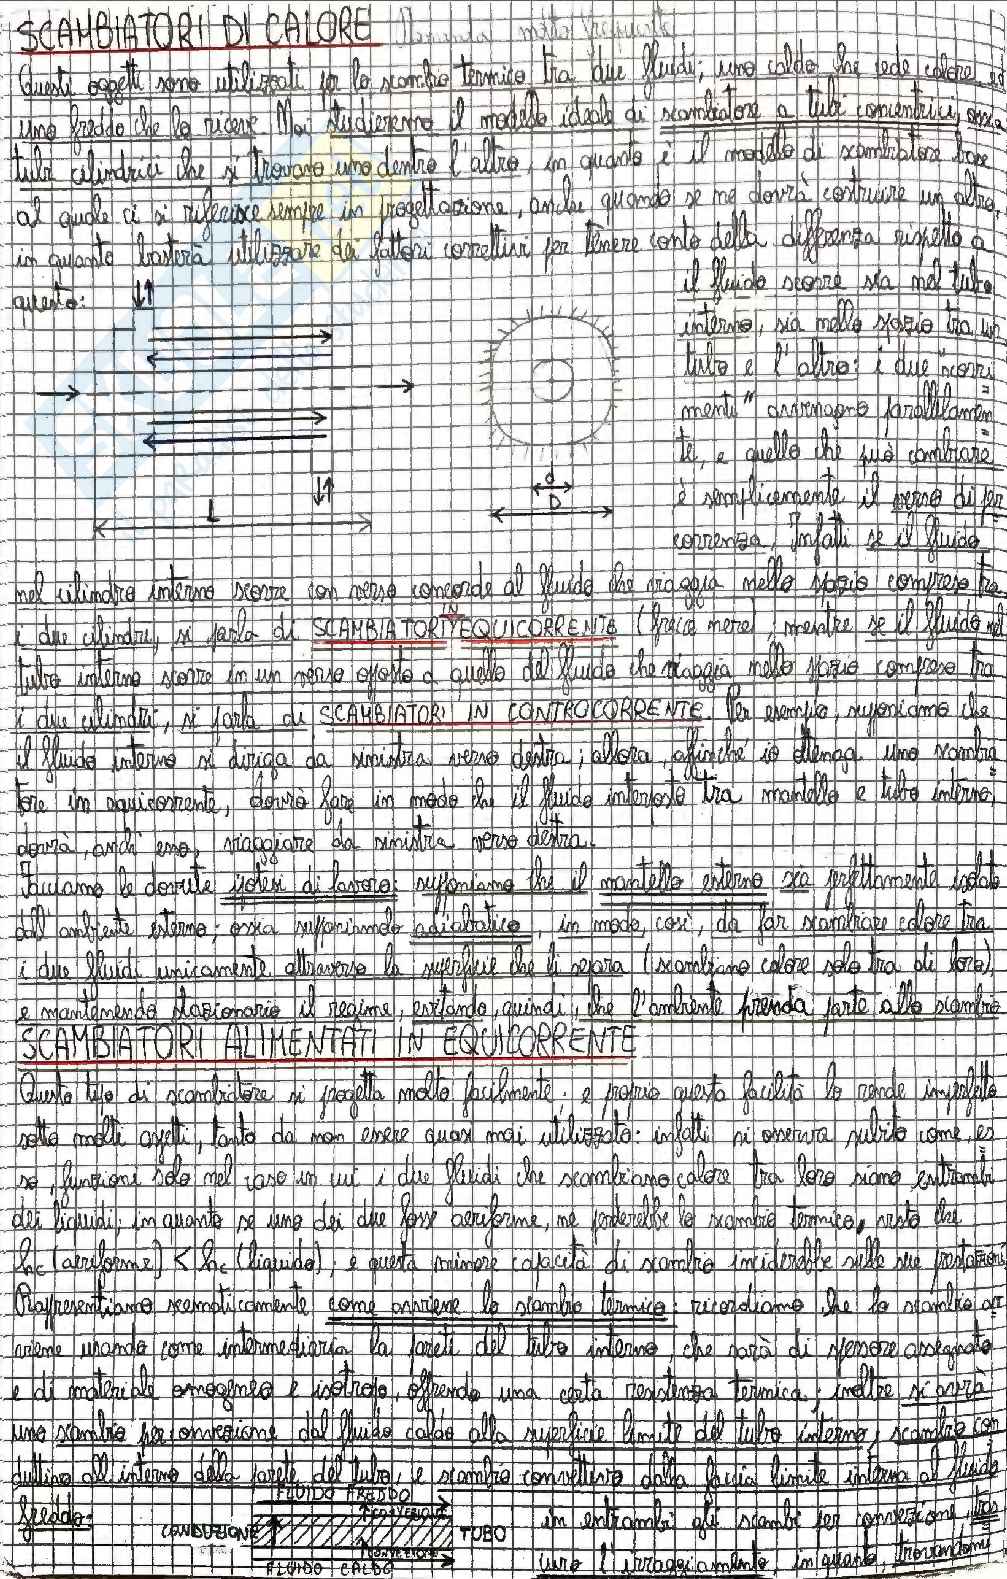 SCAMBIATORI DI CALORE Domanda molto frequente
Questi oggetti sono utilizzati per lo scambio termico tra due fluidi; uno caldo che cede calore ed
uno freddo che lo riceve. Noi studieremo il modello ideale di scambiatore a tubi concentrici, ossia
tubi cilindrici che si trovano uno dentro l'altro, in quanto è il modello di scambiatore base
al quale ci si riferisce sempre in progettazione, anche quando se ne dovrà costruire un altro,
in quanto basterà utilizzare dei fattori correttivi per tenere conto della differenza rispetto a
questo:
il fluido scorre sia nel tubo
interno, sia nello spazio tra un
tubo e l'altro: i due "scorri
menti" avvengono parallelamen=
te, e quello che può cambiare
è semplicemente il verso di per
correnza. Infatti se il fluido
L
d
D
nel cilindro interno scorre con verso concorde al fluido che viaggia nello spazio compreso tra
i due cilindri, si parla di SCAMBIATORI IN EQUICORRENTE (frecce nere); mentre se il fluido nel
tubo interno scorre in un verso opposto a quello del fluido che viaggia nello spazio compreso tra
i due cilindri, si parla di SCAMBIATORI IN CONTROCORRENTE. Per esempio, supponiamo che
il fluido interno si diriga da sinistra verso destra; allora, affinché io ottenga uno scambia=
tore in equicorrente, dovrò fare in modo che il fluido interposto tra mantello e tubo interno,
dovrà, anch'esso, viaggiare da sinistra verso destra.
Facciamo le dovute ipotesi di lavoro: supponiamo che il mantello esterno sia perfettamente isolato
dall'ambiente esterno; ossia supponiamolo adiabatico, in modo, così, da far scambiare calore tra
i due fluidi unicamente attraverso la superficie che li separa (scambiano calore solo tra di loro),
e mantenendo stazionario il regime, evitando, quindi, che l'ambiente prenda parte allo scambio
SCAMBIATORI ALIMENTATI IN EQUICORRENTE
Questo tipo di scambiatore si progetta molto facilmente, e proprio questa facilità lo rende imperfetto
sotto molti aspetti, tanto da non essere quasi mai utilizzato: infatti si osserva subito come, es
so, funzioni solo nel caso in cui i due fluidi che scambiano calore tra loro siano entrambi
dei liquidi; in quanto se uno dei due fosse aeriforme, ne perderebbe lo scambio termico, visto che
hc (aeriforme) < hc (liquido), e questa minore capacità di scambio inciderebbe sulle sue prestazioni
Rappresentiamo semplicemente come avviene lo scambio termico: ricordiamo che lo scambio av
viene usando come intermediaria la pareti del tubo interno, che sarà di spessore assegnato
e di materiale omogeneo e isotropo, offrendo una certa resistenza termica; inoltre si avrà
uno scambio per convezione dal fluido caldo alla superficie limite del tubo interno, scambio con
duttivo all'interno della parete del tubo, e scambio convettivo dalla faccia limite interna al fluido
freddo.
FLUIDO FREDDO
CONVEZIONE
CONDUZIONE
TUBO
CONVEZIONE
FLUIDO CALDO
in entrambi gli scambi per convezione, tras
curo l'irraggiamento, in quanto, trovandomi